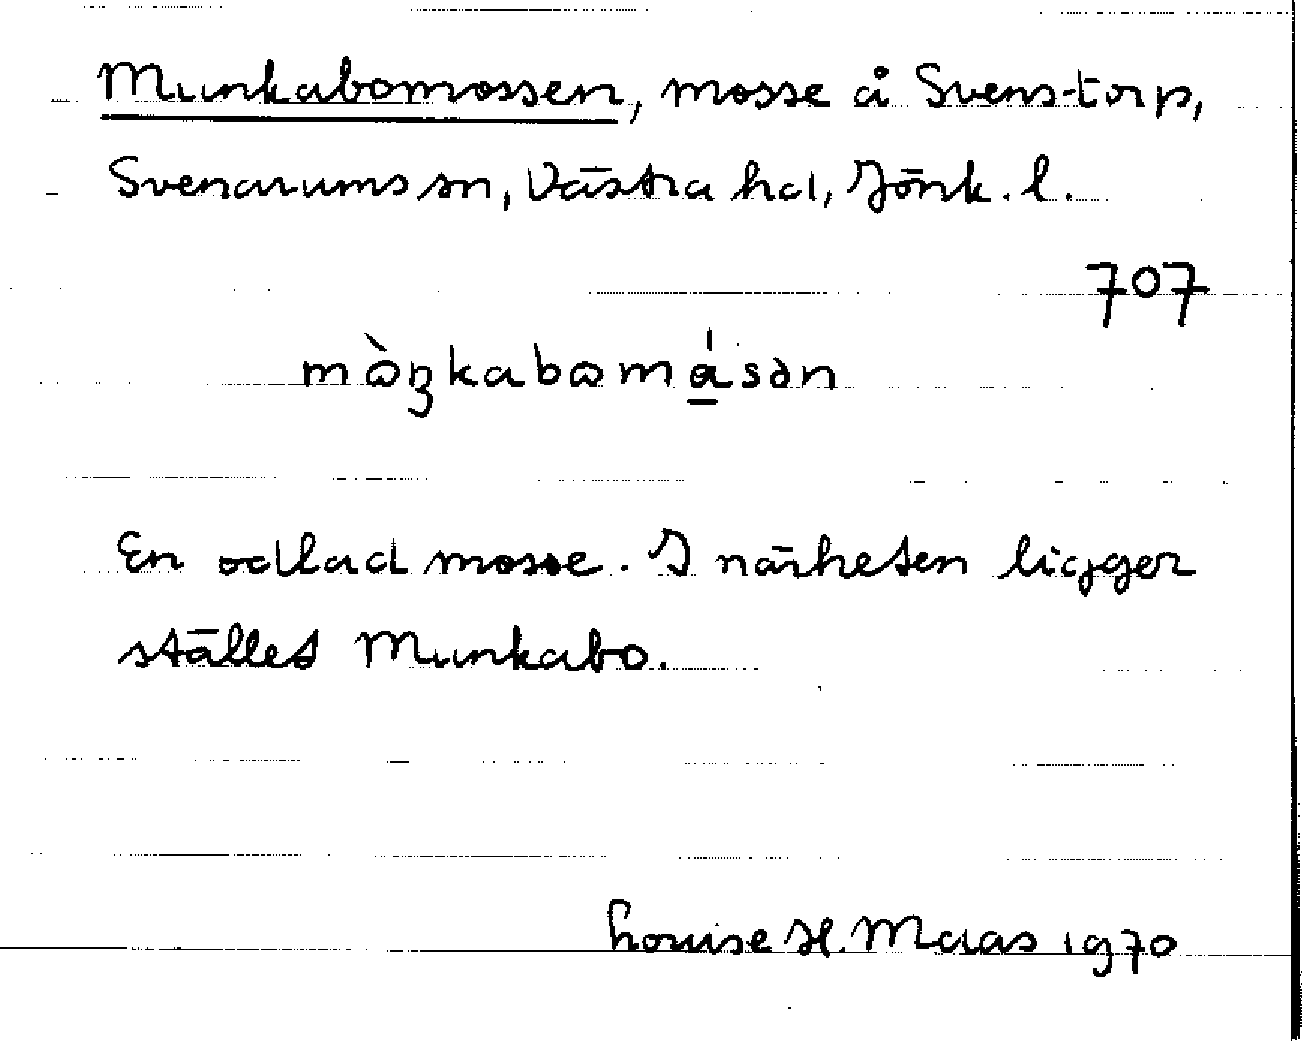 Munkabomossen, mosse å Svenstorp,
Svenarums sn, Västra hd, Jönk. l.
707
mɷ̀ŋkabɷmá̱sən
En odlad mosse. I närheten ligger
stället Munkabo.
Louise H. Maas 1970